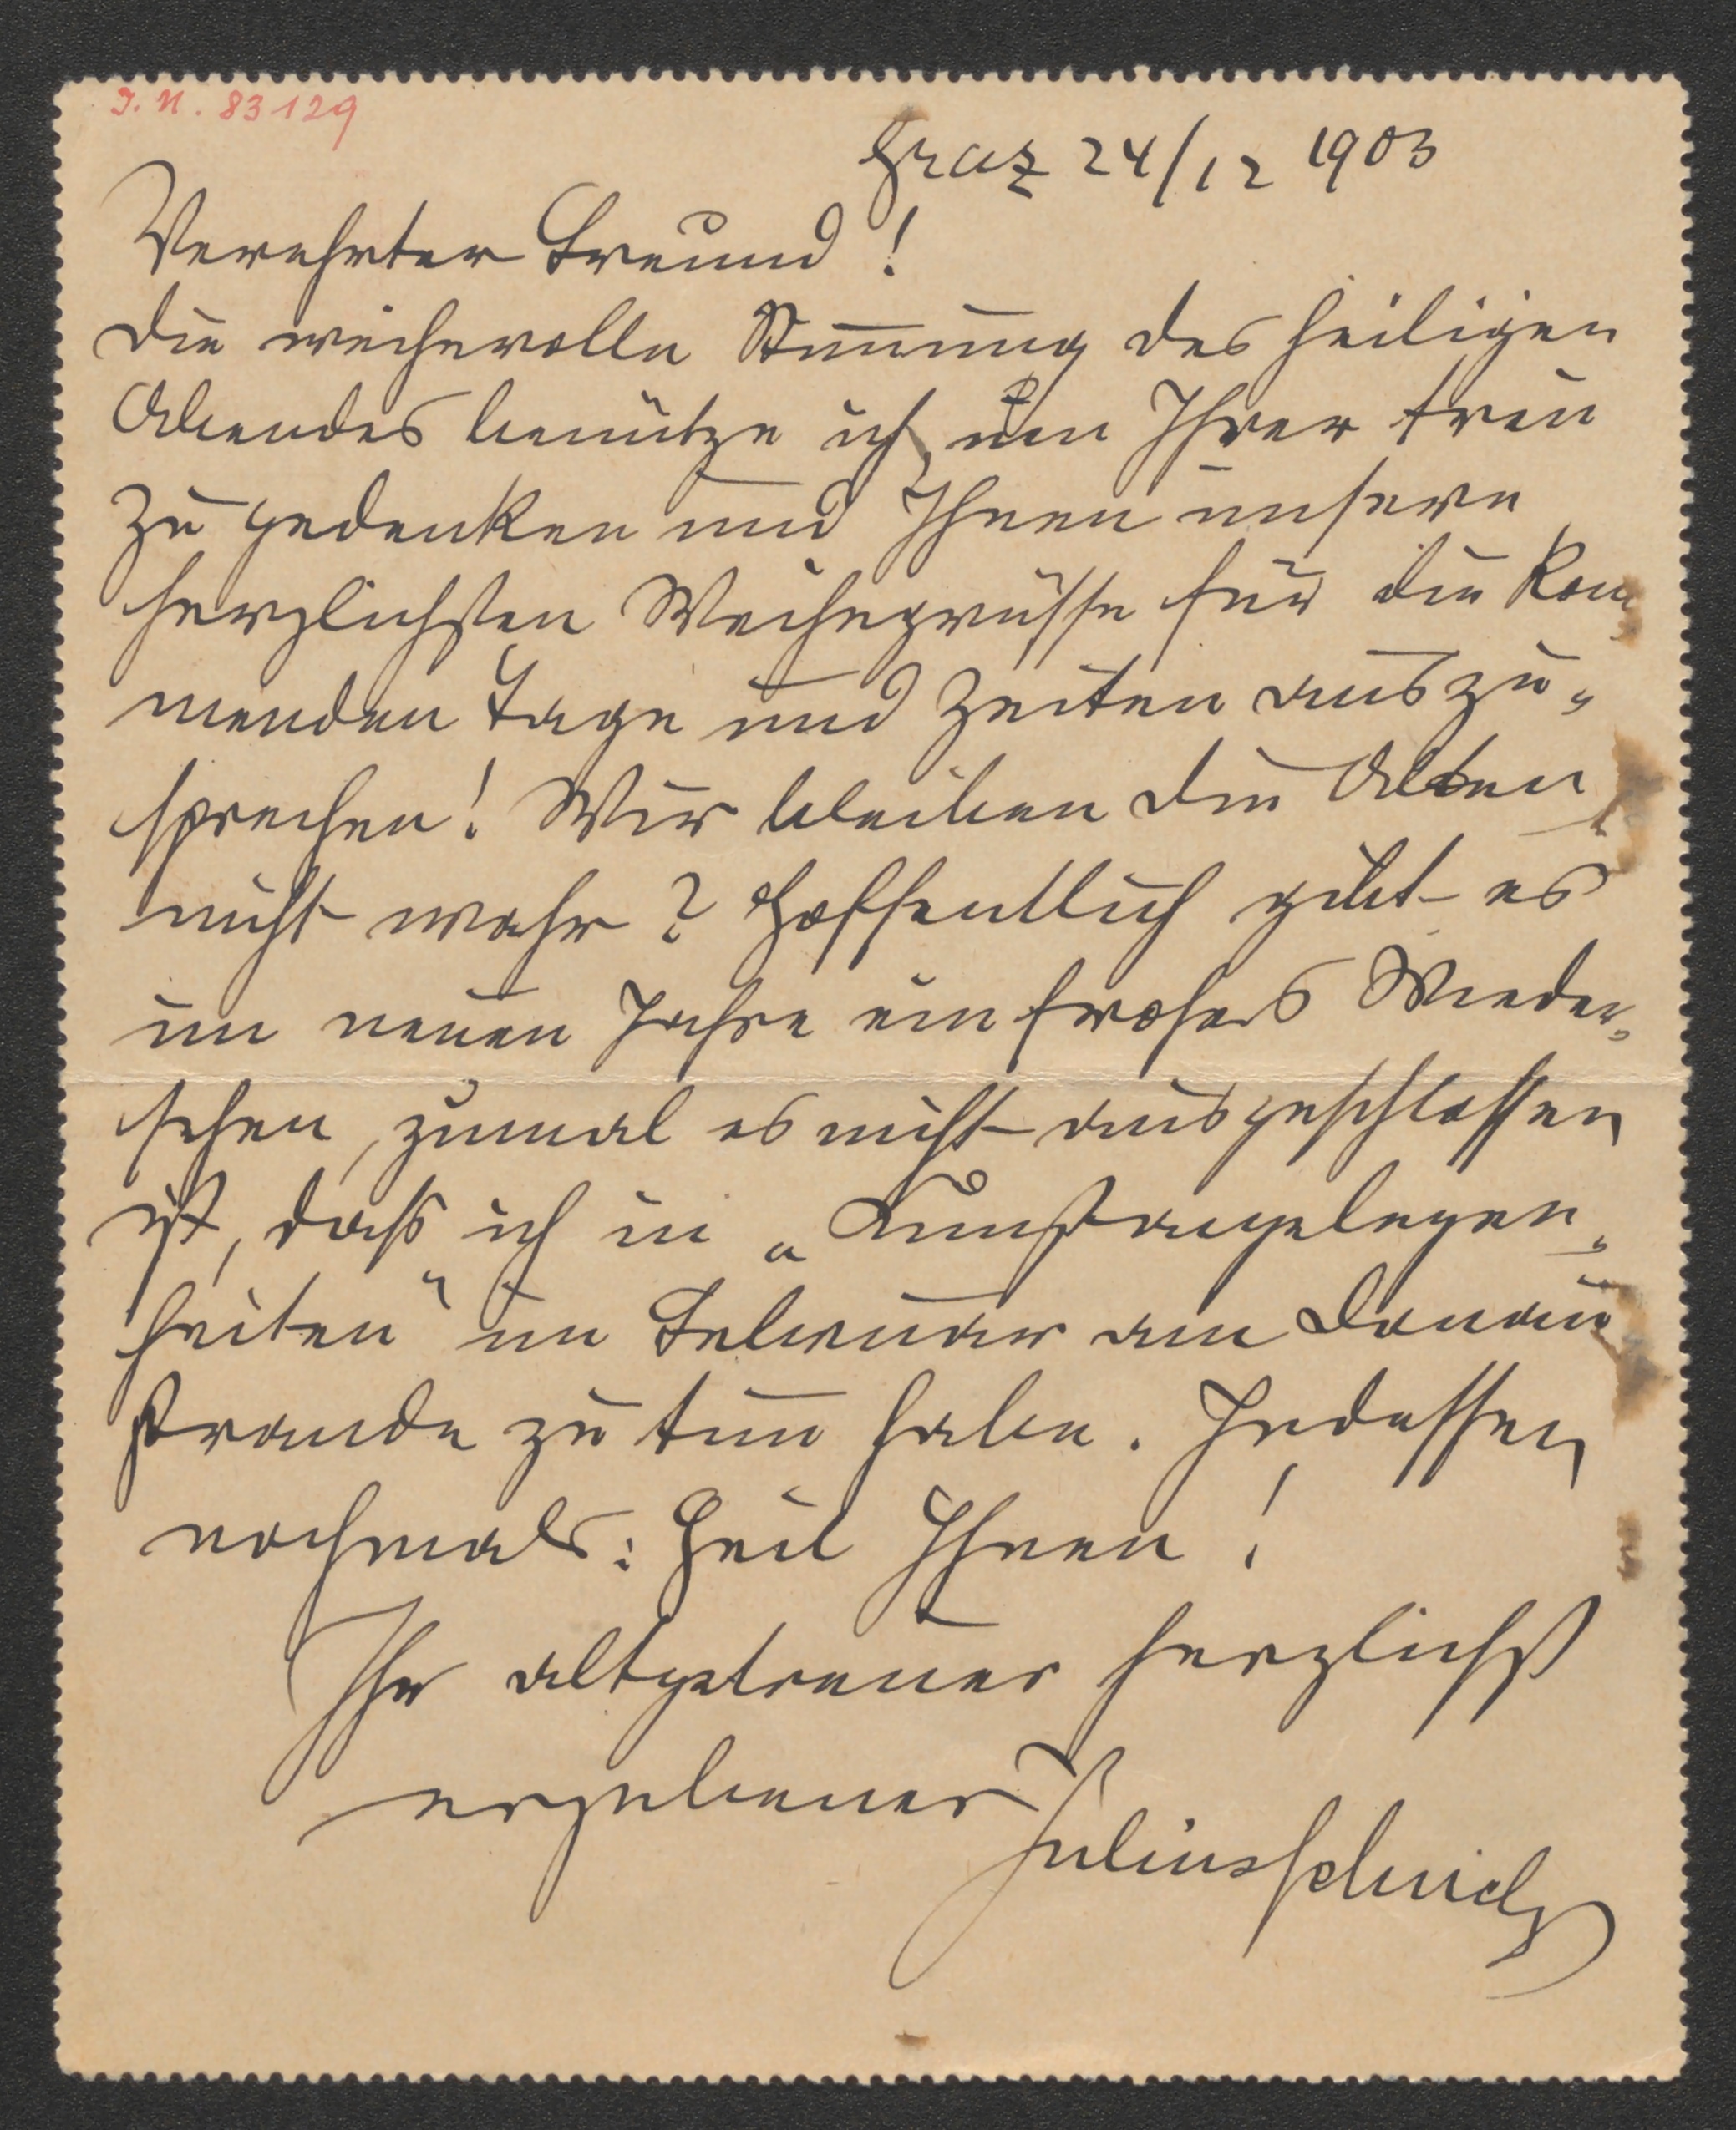 I. N. 83129
Graz 24/12 1903
Verehrter Freund!
Die weihevolle Stimmung des heiligen
Abendes benütze ich, um Ihrer treu
zu gedenken und Ihnen unsere
herzlichsten Weihegrüsse für die kom
menden Tage und Zeiten auszu„
sprechen! Wir bleiben die Alten
nicht wahr? Hoffentlich gibt es
im neuen Jahre ein frohes Wieder„
sehen, zumal es nicht ausgeschlossen
ist, daß ich in „Kunstangelegen„
heiten“ im Februar am Donau
strande zu tun habe. Indessen
nochmals: Heil Ihnen!
Ihr altgetreuer herzlichst
ergebener
Julius Schuch